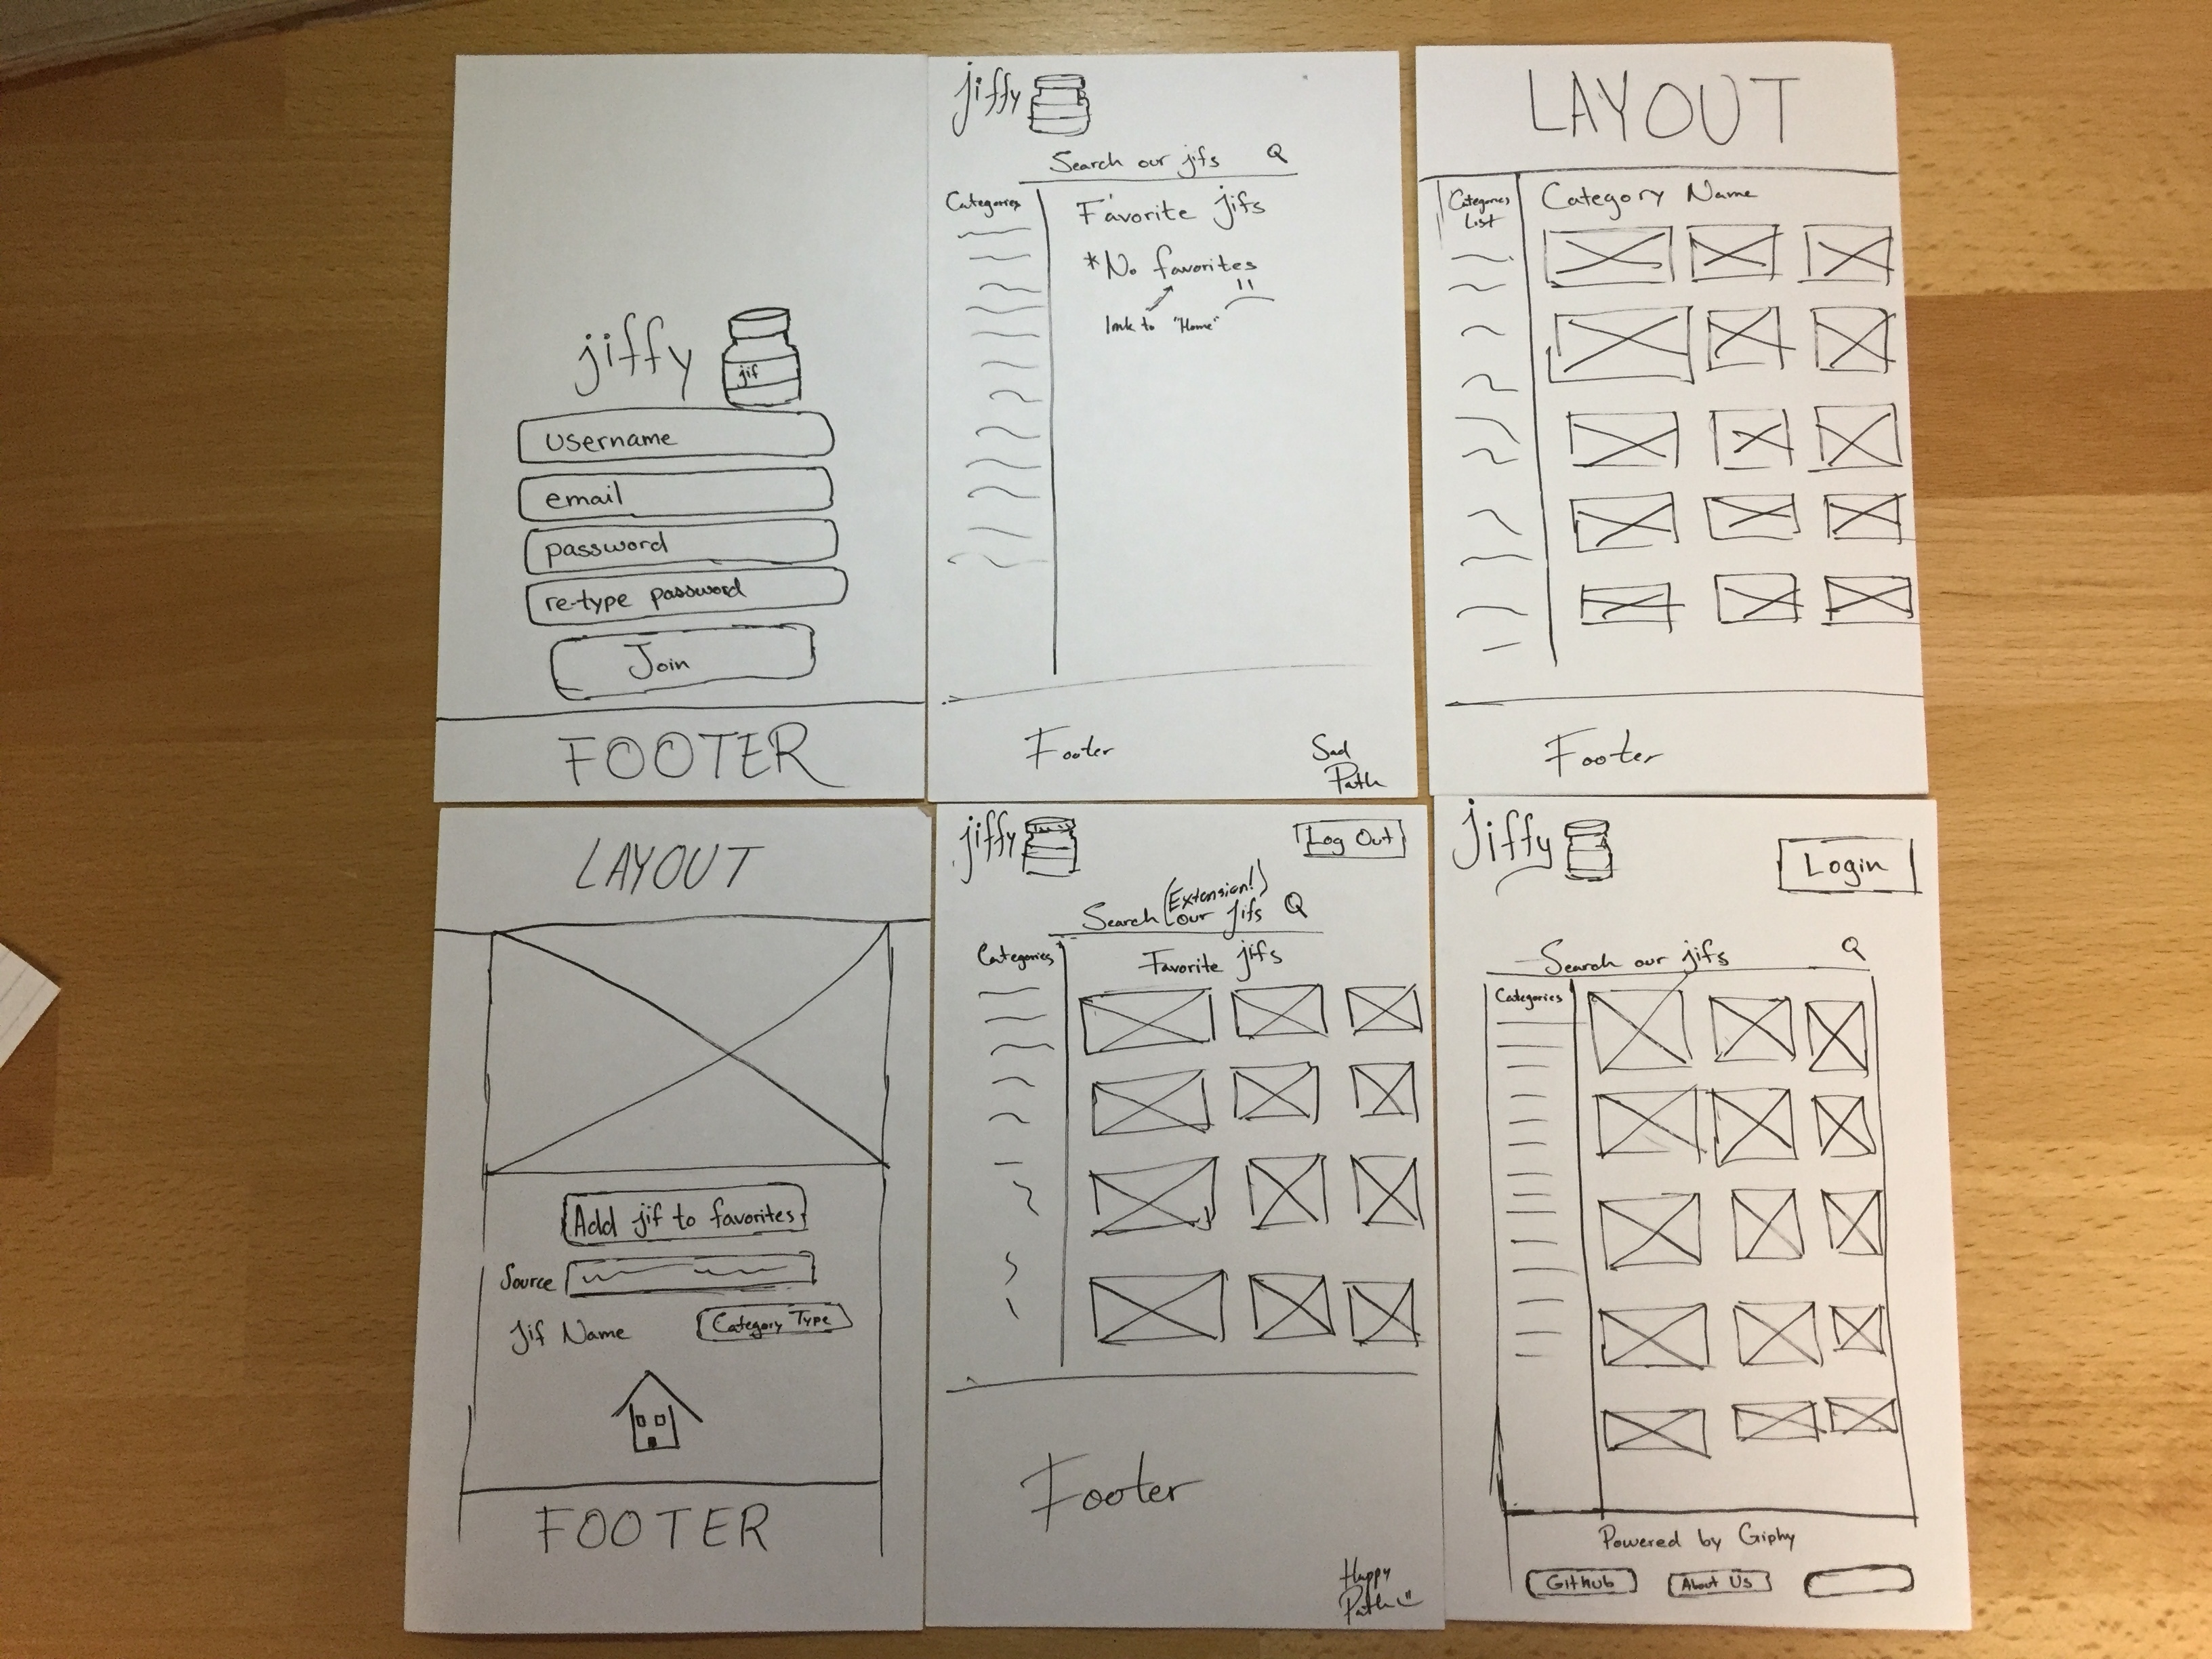 jiffy
jif
username
email
password
re-type password
Join
FOOTER
jiffy
Search our jifs
Categories
Favorite jifs
*No favorites
link to "Home"
Footer
Sad
Path
LAYOUT
Categories
List
Category Name
Footer
LAYOUT
Add jif to favorites
Source
Jif Name
Category Type
FOOTER
jiffy
Log Out
(Extension!)
Search our jifs
Categories
Favorite jifs
Footer
Happy
Path
Jiffy
Login
Search our jifs
Categories
Powered by Giphy
GitHub
About Us